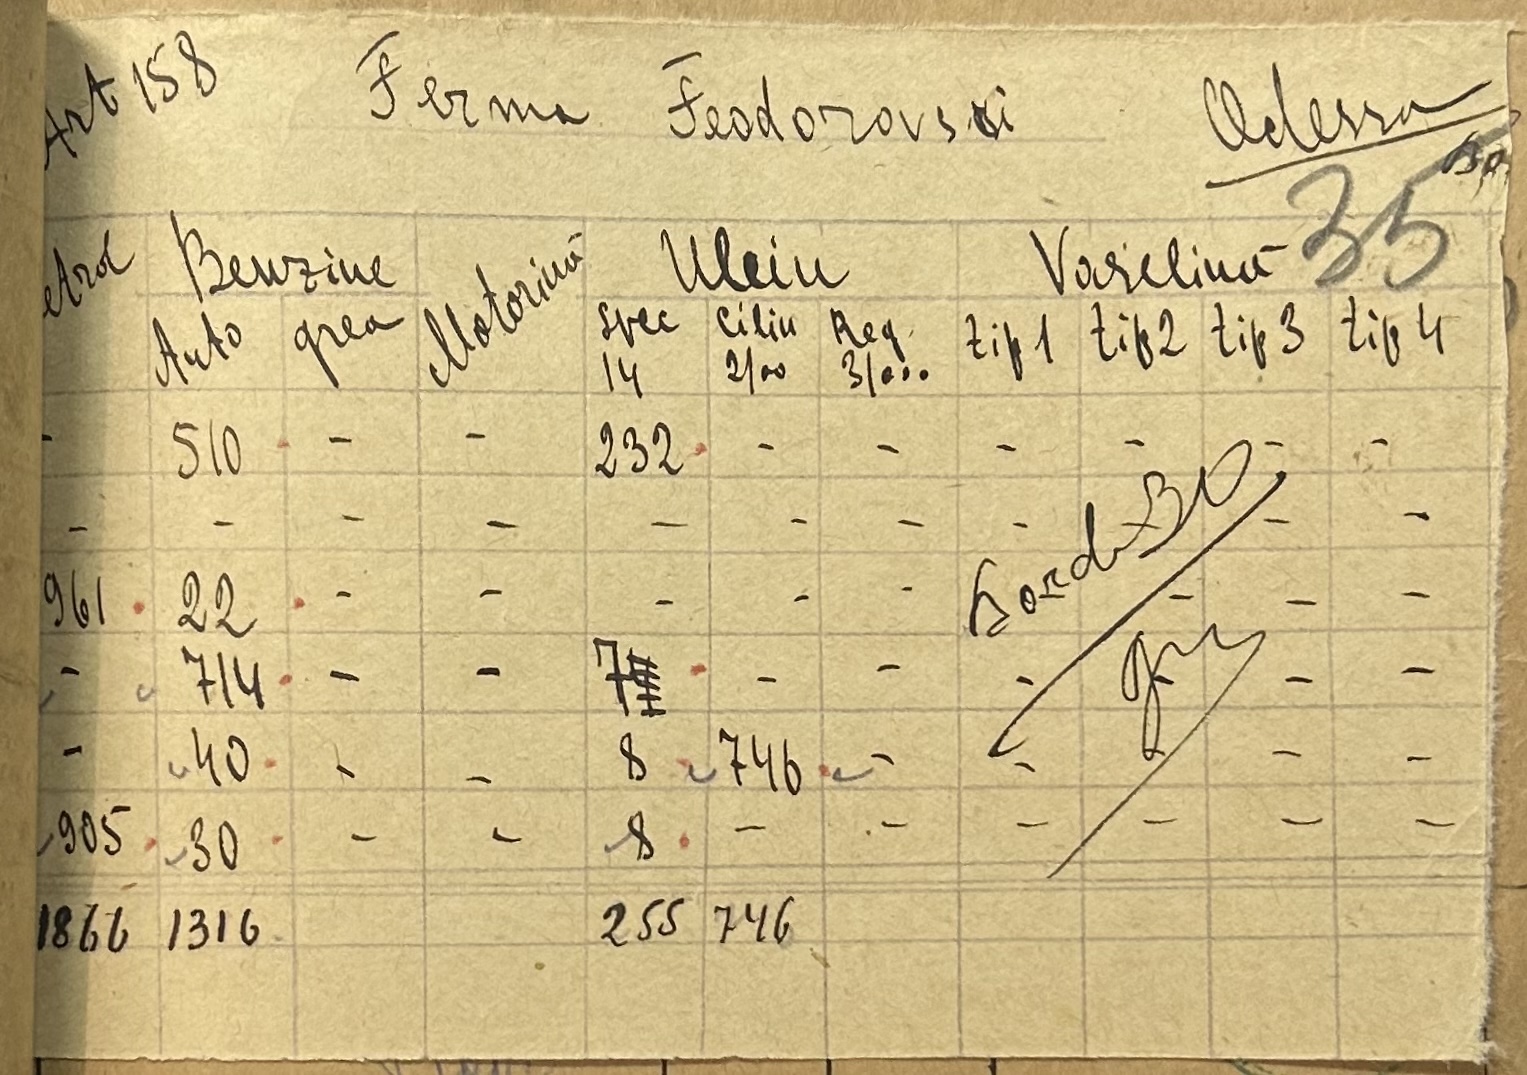 Art 158 Ferma Feodorovski Odessa
35
etrol Benzine Motorină Uleiu Vaselină
Auto grea spec 14 Ciliu 2/00 Reg. 3/000. tip 1 tip 2 tip 3 tip 4
- 510 - - 232 - - - - - -
- - - - - - - - - - -
961 22 - - - - - - - -
- 714 - - 7 - - - - - -
- 40 - - 8 746 - - - -
905 30 - - 8 - - - - - -
1866 1316 255 746
Bord 30